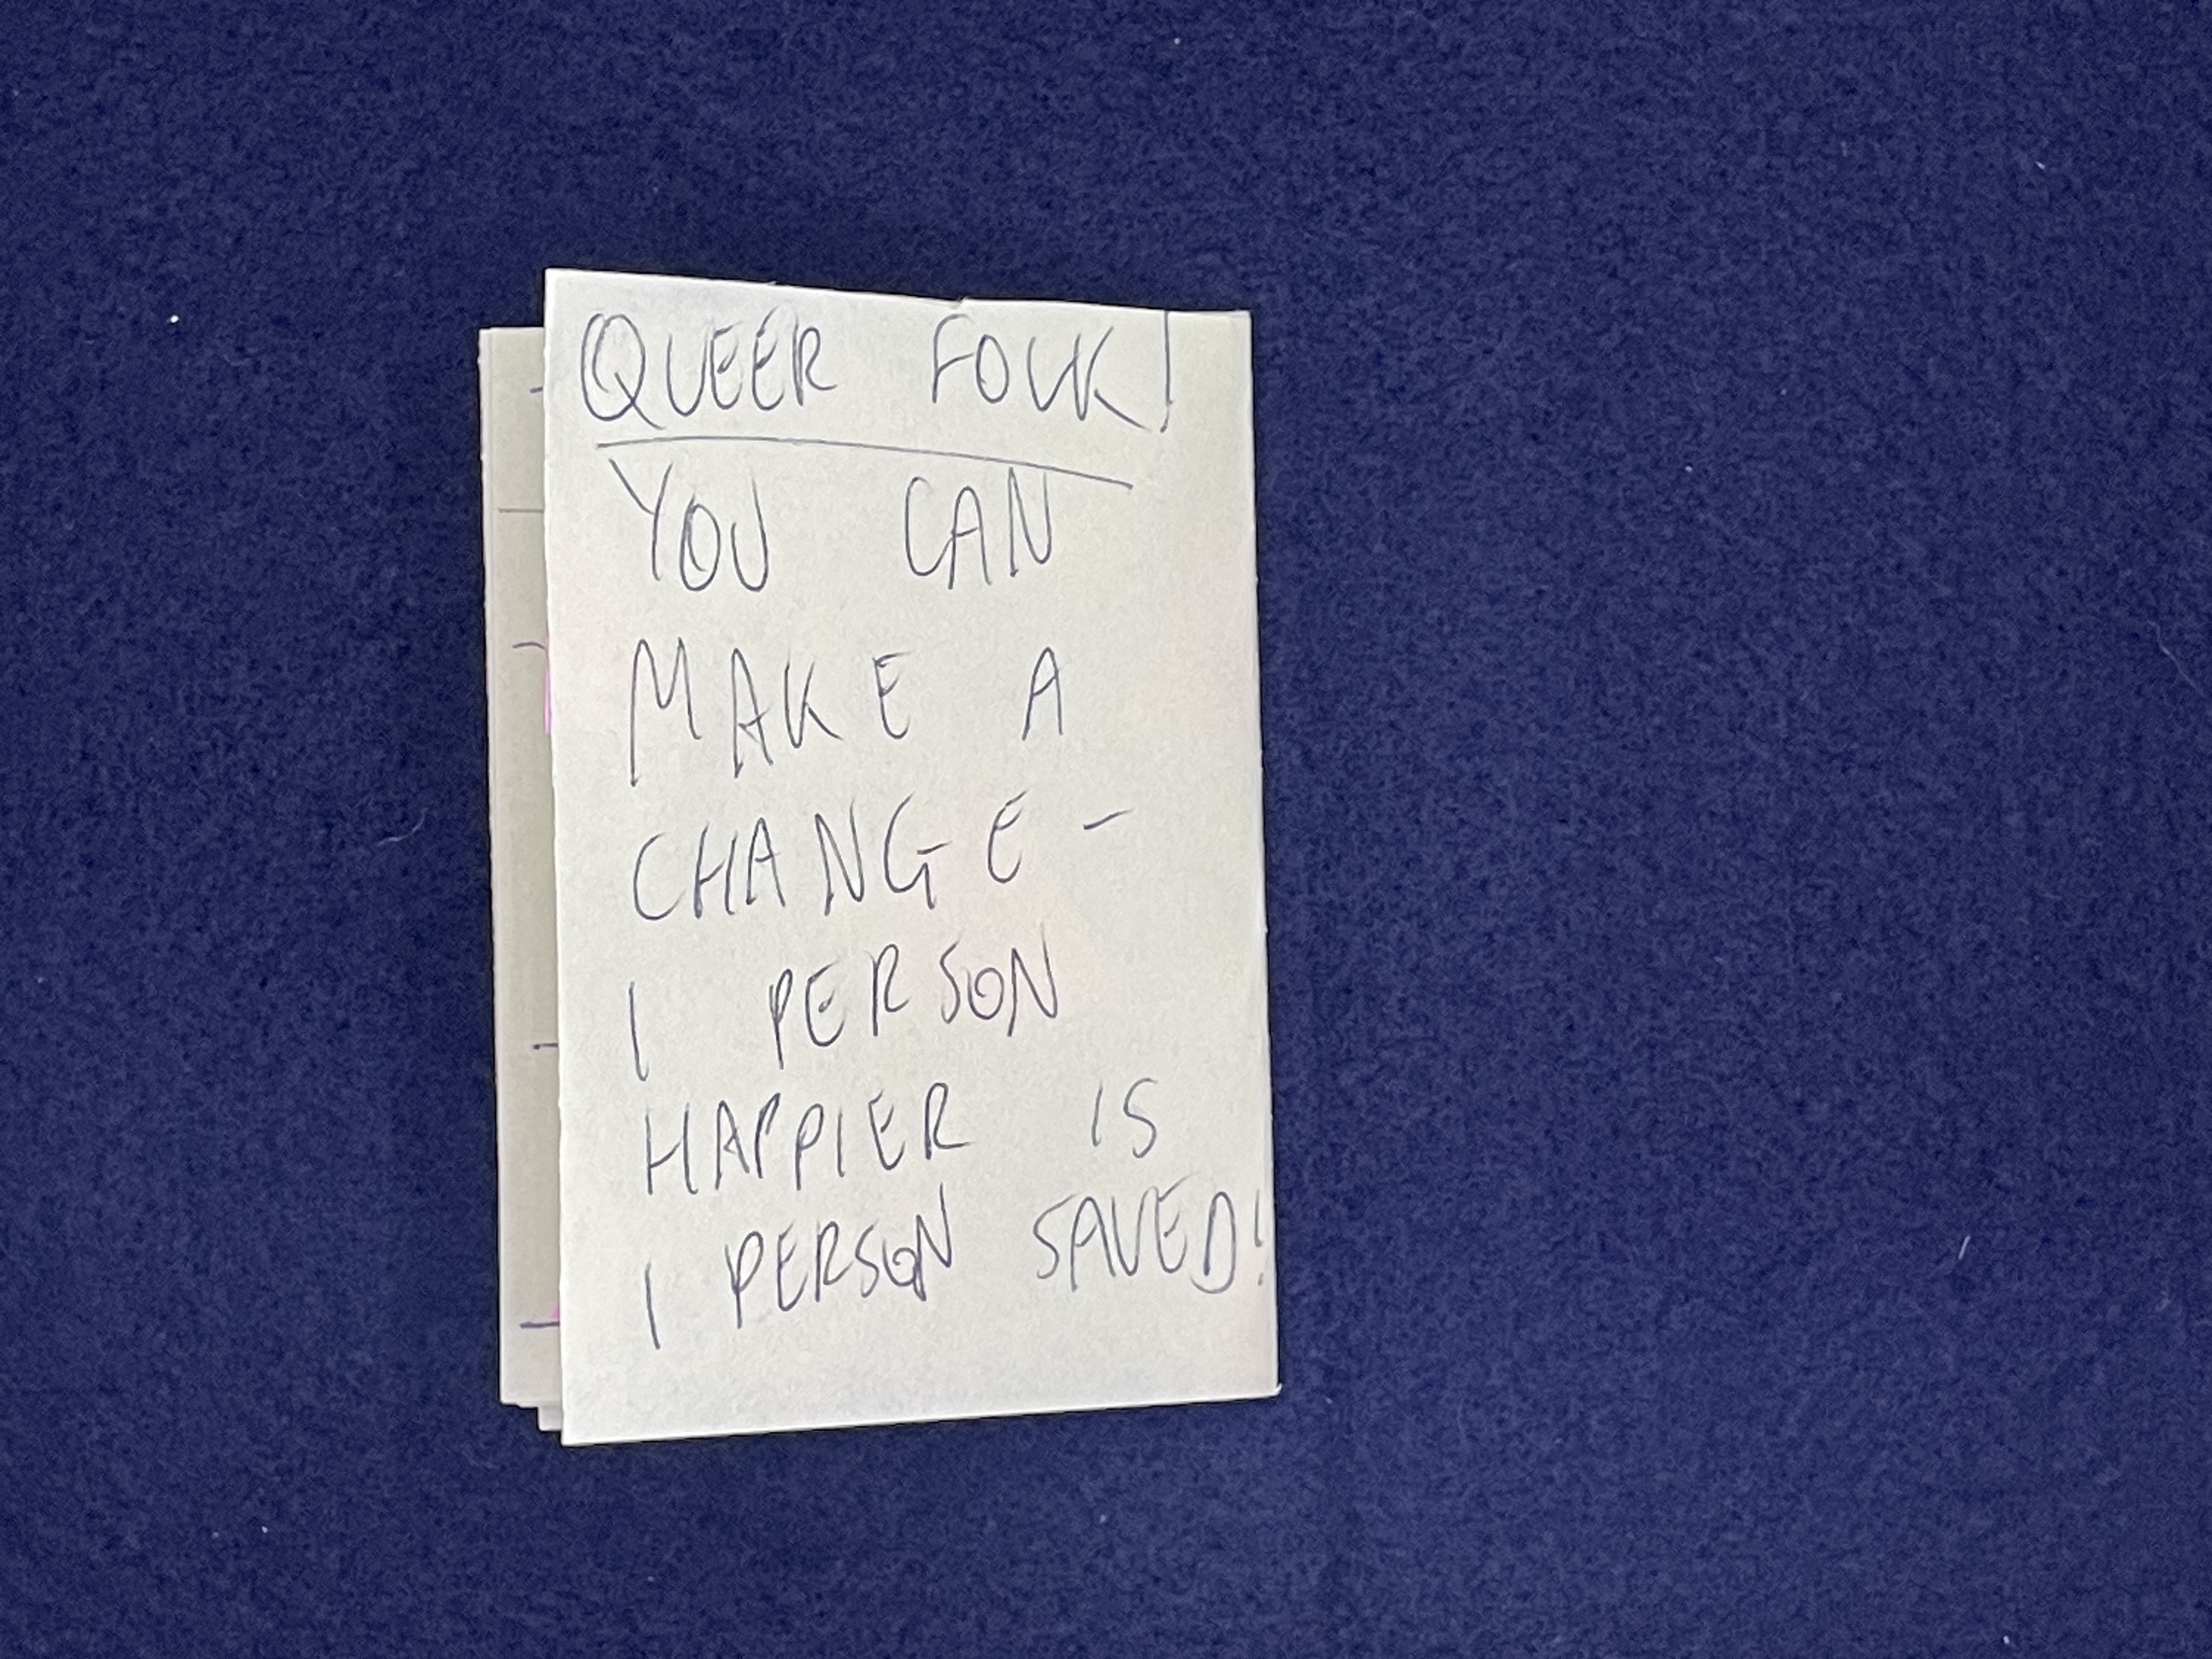 QUEER FOLK!
YOU CAN
MAKE A
CHANGE -
1 PERSON
HAPPIER IS
1 PERSON SAVED!